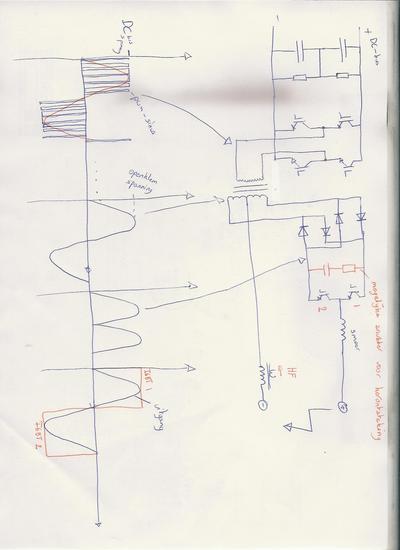 + DC-bus
-
DC bus
spang
pwm-sinus
openklem
spanning
mogelijke snubber voor kortontsteking
1
2
smoor
HF
uitgang
IGBT 1
IGBT 2